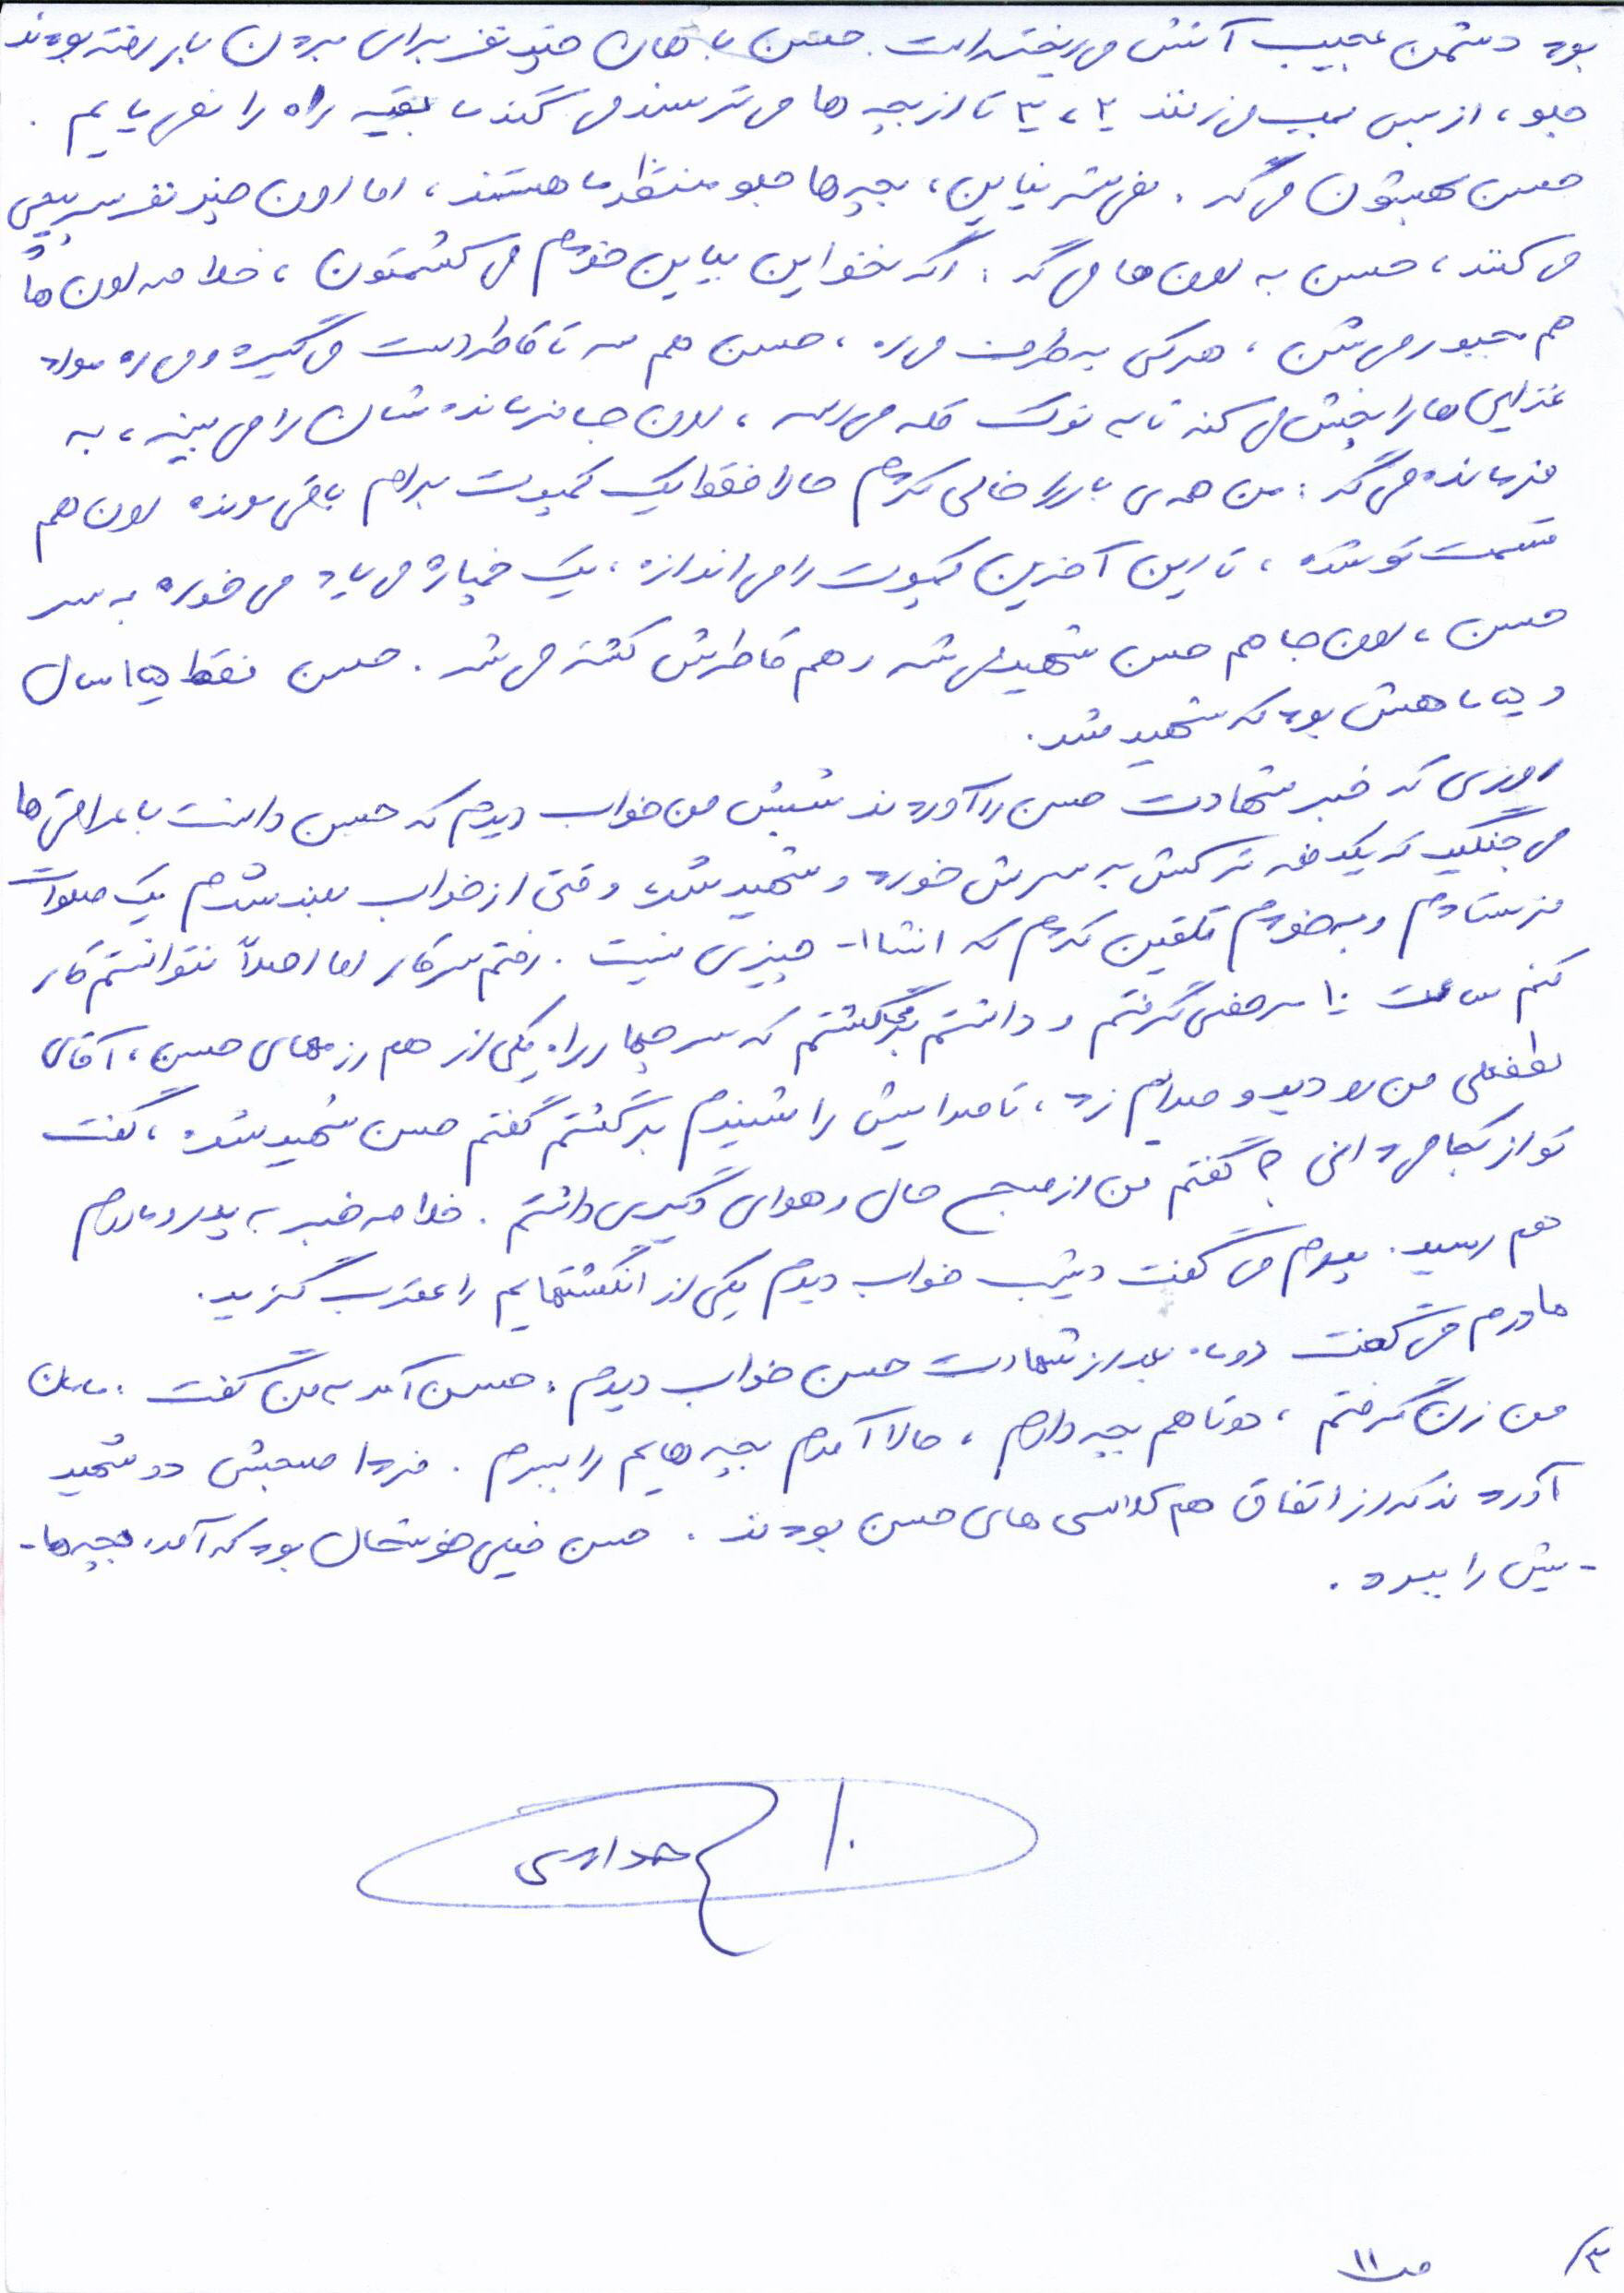 بود دشمن عجیب آتش می ریخته است. حسن با همان چند نفر برای بردن بار رفته بودند
جلو، از بس بمب می زنند ۲، ۳ تا از بچه ها می ترسند می گند ما بقیه راه را نمی یایم.
حسن بهشون می گه. نمی شه نیاین، بچه ها جلو منتظر ما هستند، اما اون چند نفر سرپیچی
می کنند، حسن به اون ها می گه: اگه نخواین بیاین خودم می کشمتون، خلاصه اون ها
هم مجبور می شن، هر کی یه طرف می ره، حسن هم سه تا قاطر دست می گیره و می ره مواد
غذایی ها را پخش می کنه تا به نوک قله می رسه، اون جا فرمانده شان را می بینه، به
فرمانده می گه: من همه ی بار را خالی کردم حالا فقط یک کمپوت برام باقی مونده اون هم
قسمت تو شده، تا این آخرین کمپوت را می اندازه، یک خمپاره می یاد می خوره به سر
حسن، اون جا هم حسن شهید می شه و هم قاطرش کشته می شه. حسن فقط ۱۵ سال
و ۵ ماهش بود که شهید شد.
روزی که خبر شهادت حسن را آوردند شبش من خواب دیدم که حسن داشت با عراقی ها
می جنگید که یکدفعه ترکش به سرش خورد و شهید شد، وقتی از خواب بلند شدم یک صلوات
فرستادم و به خودم تلقین کردم که انشاا... چیزی نیست. رفتم سرکار اما اصلاً نتوانستم کار
کنم ساعت ۱۰ مرخصی گرفتم و داشتم برمی گشتم که سر چهارراه یکی از هم رزمهای حسن، آقای
لطفعلی من رو دید و صدام زد، تا صدایش را شنیدم برگشتم گفتم حسن شهید شده، گفت
تو از کجا می دانی؟ گفتم من از صبح حال و هوای دیگری داشتم. خلاصه خبر به پدر و مادرم
هم رسید. پدرم می گفت دیشب خواب دیدم یکی از انگشتهایم را عقرب گزید.
مادرم می گفت دو ماه بعد از شهادت حسن خواب دیدم، حسن آمد به من گفت: مامان
من زن گرفتم، دو تا هم بچه دارم، حالا آمدم بچه هایم را ببرم. فردا صبحش دو شهید
آوردند که از اتفاق هم کلاسی های حسن بودند. حسن خیلی خوشحال بود که آمده بچه ها-
-یش را ببرد.
۳/
ص ۱۱